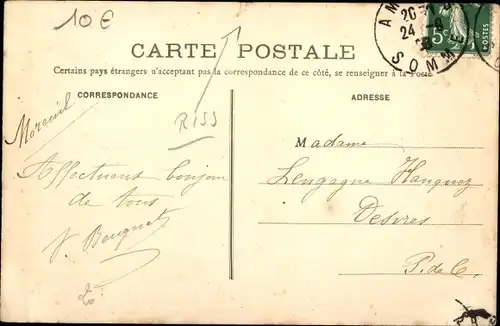 10€
AM
20
24 - 8
SOMME
5c
POSTES
CARTE POSTALE
Certains pays étrangers n'acceptant pas la correspondance de ce côté, se renseigner à la Poste
CORRESPONDANCE
ADRESSE
RISS
Moreuil
Affectueux bonjour
de tous
Madame
Lengagne Hanquez
Desvres
P. de C.